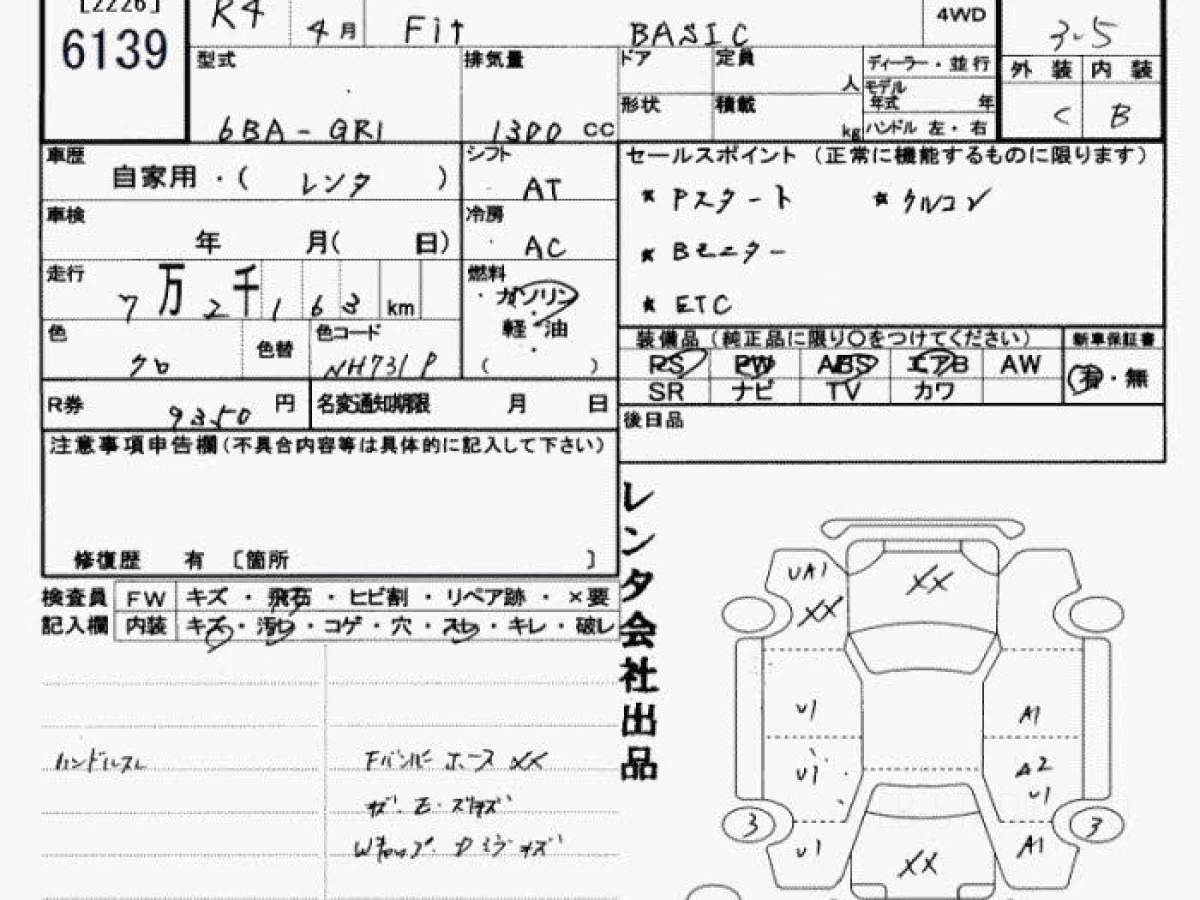 [2226]
6139
R4 4月 Fit BASIC 4WD 3.5
型式 6BA-GR1
排気量 1300 CC
ドア 定員 人
形状 積載 kg
ディーラー・並行
モデル年式 年
ハンドル 左・右
外装 内装
C B
車歴 自家用・(レンタ)
シフト AT
車検 年 月( 日)
冷房 AC
走行 7万2千163 km
燃料 ガソリン
軽・油
( )
色 クロ 色替 色コード NH731P
R券 9350 円 名変通知期限 月 日
セールスポイント (正常に機能するものに限ります)
* Pスタート * クルコン
* Bモニター
* ETC
装備品(純正品に限り○をつけてください) 新車保証書
PS PW ABS エアB AW 有・無
SR ナビ TV カワ
後日品
注意事項申告欄(不具合内容等は具体的に記入して下さい)
修復歴 有 〔箇所 〕
検査員 FW キズ・飛石・ヒビ割・リペア跡・×要
記入欄 内装 キズ・汚レ・コゲ・穴・スレ・キレ・破レ
ハンドルスレ
Fバンパー ホース XX
レンタ会社出品
UA1
XX
XX
U1
A1
U1
A2
U1
3
3
U1
A1
XX